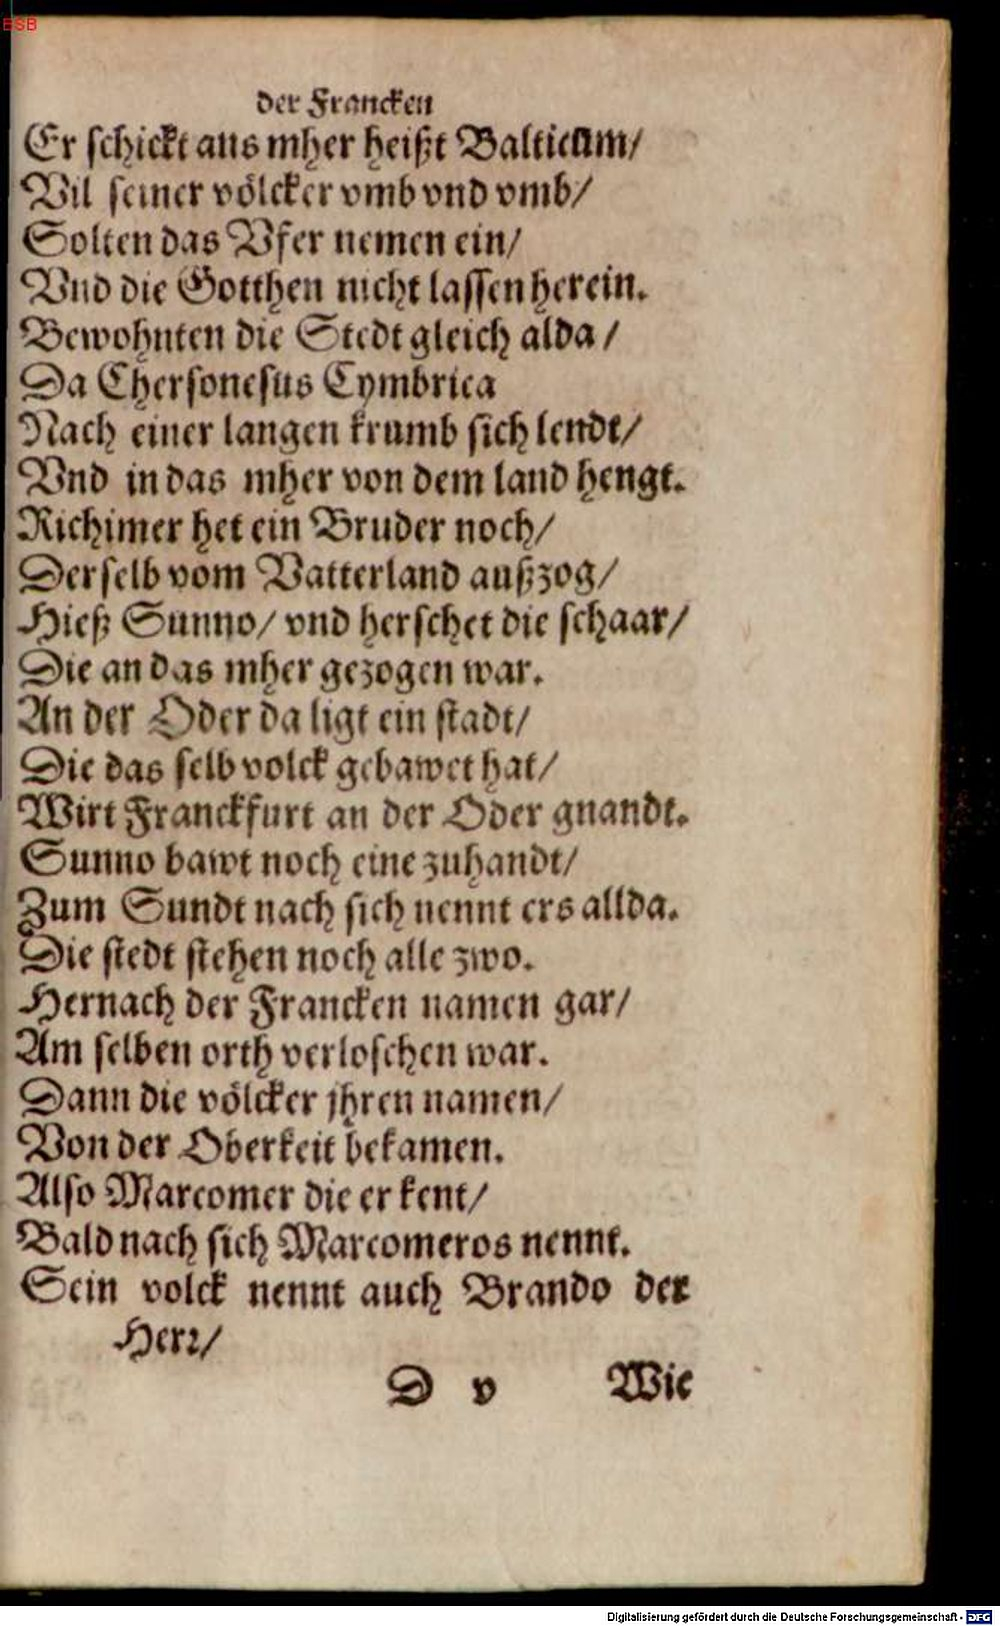 ESB
der Francken
Er schickt ans mher heißt Balticum/
Vil seiner völcker vmb vnd vmb/
Solten das Vfer nemen ein/
Vnd die Gotthen nicht lassen herein.
Bewohnten die Stedt gleich alda /
Da Chersonesus Cymbrica
Nach einer langen krumb sich lendt/
Vnd in das mher von dem land hengt.
Richimer het ein Bruder noch/
Derselb vom Vatterland außzog/
Hieß Sunno/ vnd herschet die schaar/
Die an das mher gezogen war.
An der Oder da ligt ein stadt/
Die das selb volck gebawet hat/
Wirt Franckfurt an der Oder gnandt.
Sunno bawt noch eine zuhandt/
Zum Sundt nach sich nennt ers allda.
Die stedt stehen noch alle zwo.
Hernach der Francken namen gar/
Am selben orth verloschen war.
Dann die völcker jhren namen/
Von der Oberkeit bekamen.
Also Marcomer die er kent/
Bald nach sich Marcomeros nennt.
Sein volck nennt auch Brando der
Herr/
D v Wie
Digitalisierung gefördert durch die Deutsche Forschungsgemeinschaft - DFG